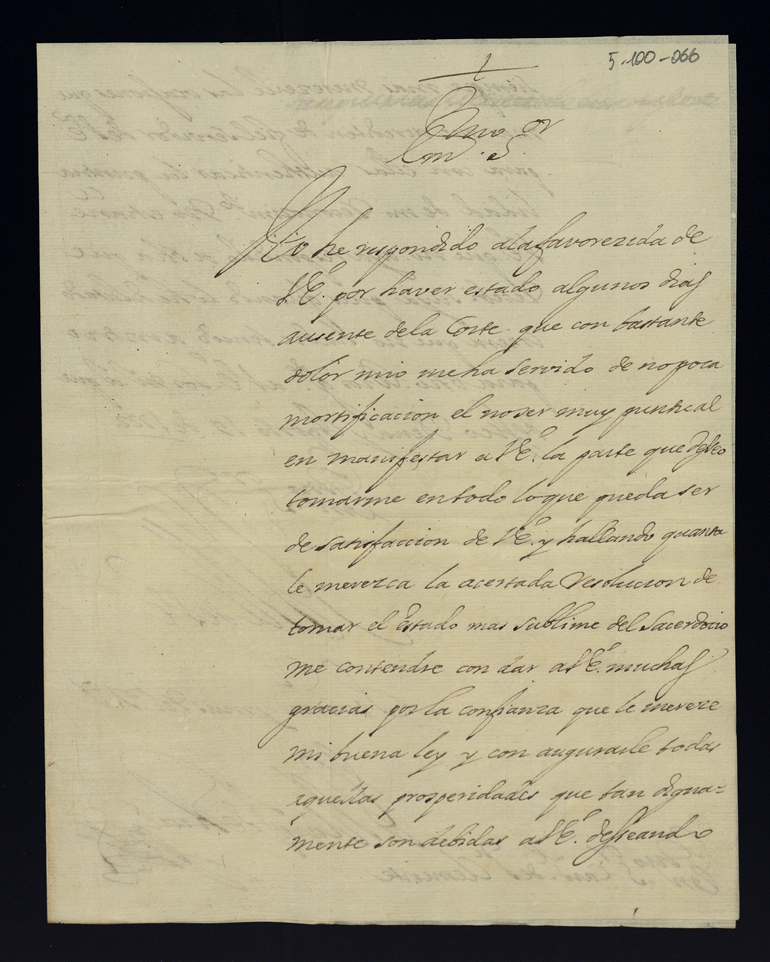 5-100-066
Exmo. Sor.
No he respondido a la favorezida de
V.E. por haver estado algunos dias
ausente de la Corte, que con bastante
dolor mio me ha servido de no poca
mortificacion el no ser muy puntual
en manifestar a V.E. la parte que devo
tomarme en todo lo que pueda ser
de satisfaccion de V.E. y hallando quanta
le merezca la acertada resolucion de
tomar el Estado mas sublime del Sacerdocio
me contendre con dar a V.E. muchas
gracias por la confianza que le mereze
mi buena ley y con augurarle todas
aquellas prosperidades que tan digna-
mente son debidas a V.E. desseando